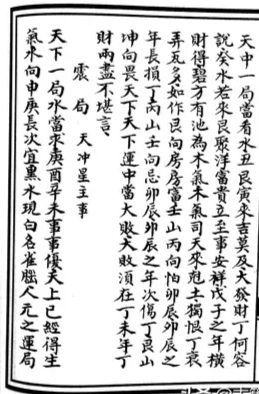 天中一局當看水丑艮寅来吉莫及大發財丁何容
說癸水若來艮聚洋富貴立至事安祥戊子之年橫
財得碧方有池為木氣木氣司天來尅土獨恨丁衰
弄瓦多如作艮向房房富壬山丙向怕卯辰卯辰之
年長損丁丙山壬向忌卯辰卯辰之年次傷丁艮山
坤向畏天下天下運中當大敗大敗須在丁未年丁
財兩盡不堪言
震局 天冲星主事
天下一局水當求庚酉辛未事事優天上已經得生
氣水向申庚長次宜黑水現白名雀腦人元之運局